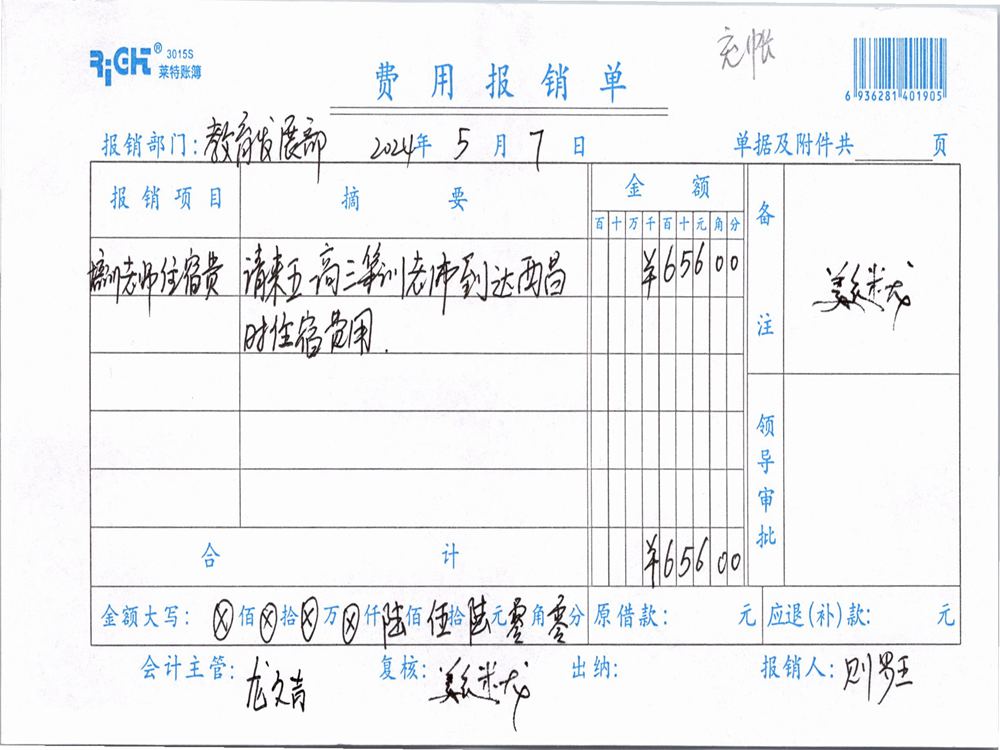 RiCH® 3015S
莱特账簿
充帐
费用报销单
6 936281 401905
报销部门：教育发展部 2024年 5 月 7 日 单据及附件共 页
报销项目 摘要 金额 备注
百 十 万 千 百 十 元 角 分
培训老师住宿费 请来五高三笔训老师到达西昌 ¥65600
时住宿费用.
领导审批
合计 ¥65600
金额大写：ⓧ佰ⓧ拾ⓧ万ⓧ仟陆佰伍拾陆元零角零分 原借款： 元 应退(补)款： 元
会计主管：龙文青 复核： 出纳： 报销人：